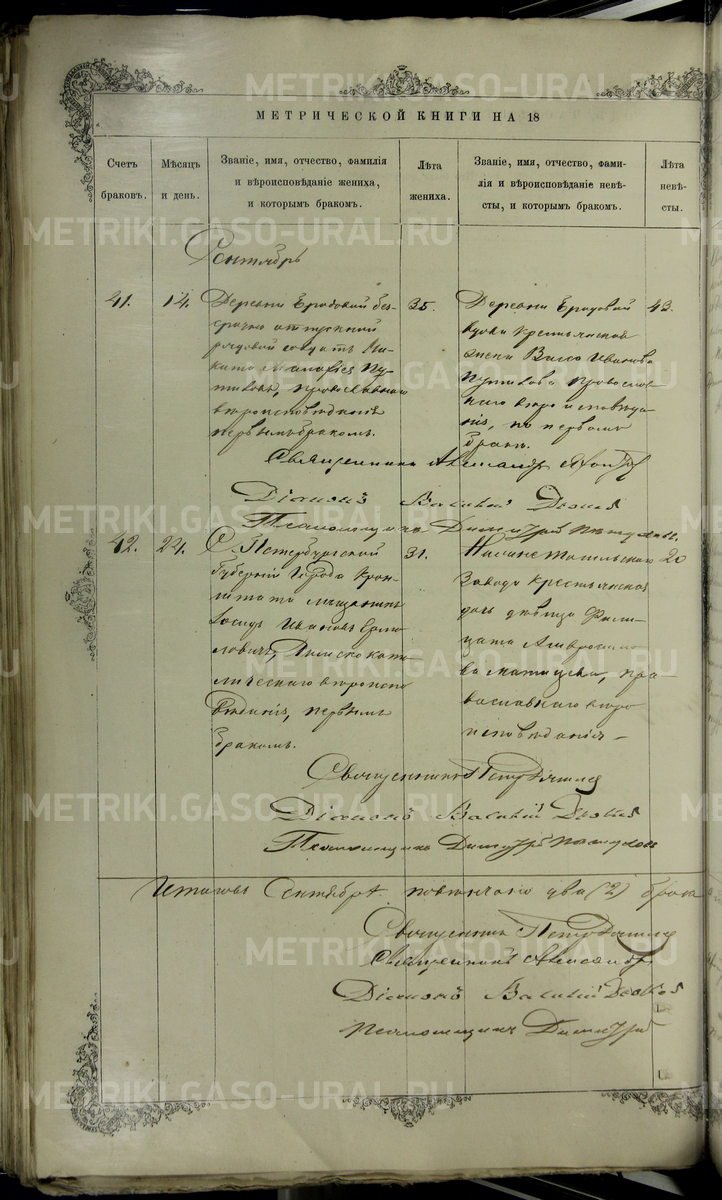 METRIKI.GASO-URAL.RU
МЕТРИЧЕСКОЙ КНИГИ НА 18
Счетъ браковъ.
Мѣсяцъ и день.
Званіе, имя, отчество, фамилія
и вѣроисповѣданіе жениха,
и которымъ бракомъ.
Лѣта жениха.
Званіе, имя, отчество, фами-
лія и вѣроисповѣданіе невѣ-
сты, и которымъ бракомъ.
Лѣта невѣ-
сты.
Сентябрь
41.
14.
Деревни без-
срочно отпускной
рядовой солдатъ Ни-
кита Пу-
тиловъ, православнаго
вѣроисповѣданія
первымъ бракомъ.
35.
Деревни
вдова крестьянская
Иванова
Путилова православ-
наго вѣроисповѣда-
нія, по первомъ
бракѣ.
43.
Священникъ Александръ
Діаконъ Василій
Псаломщикъ Димитрій
42.
24.
С. Петербургской
Губерніи города Крон-
штата мѣщанинъ
Іосифъ Ивановъ Ермо-
ловичъ, Римско като-
лическаго вѣроиспо-
вѣданія, первымъ
бракомъ.
31.
Нижне Тагильскаго
Завода крестьянская
дочь дѣвица Фили-
цата Амвросіе-
ва, пра-
вославнаго вѣро
исповѣданія
20
Священникъ Петръ
Діаконъ Василій
Псаломщикъ Димитрій
Итого въ Сентябрѣ повѣнчано два (2) брака
Священникъ Петръ
Священникъ Александръ
Діаконъ Василій
Псаломщикъ Димитрій